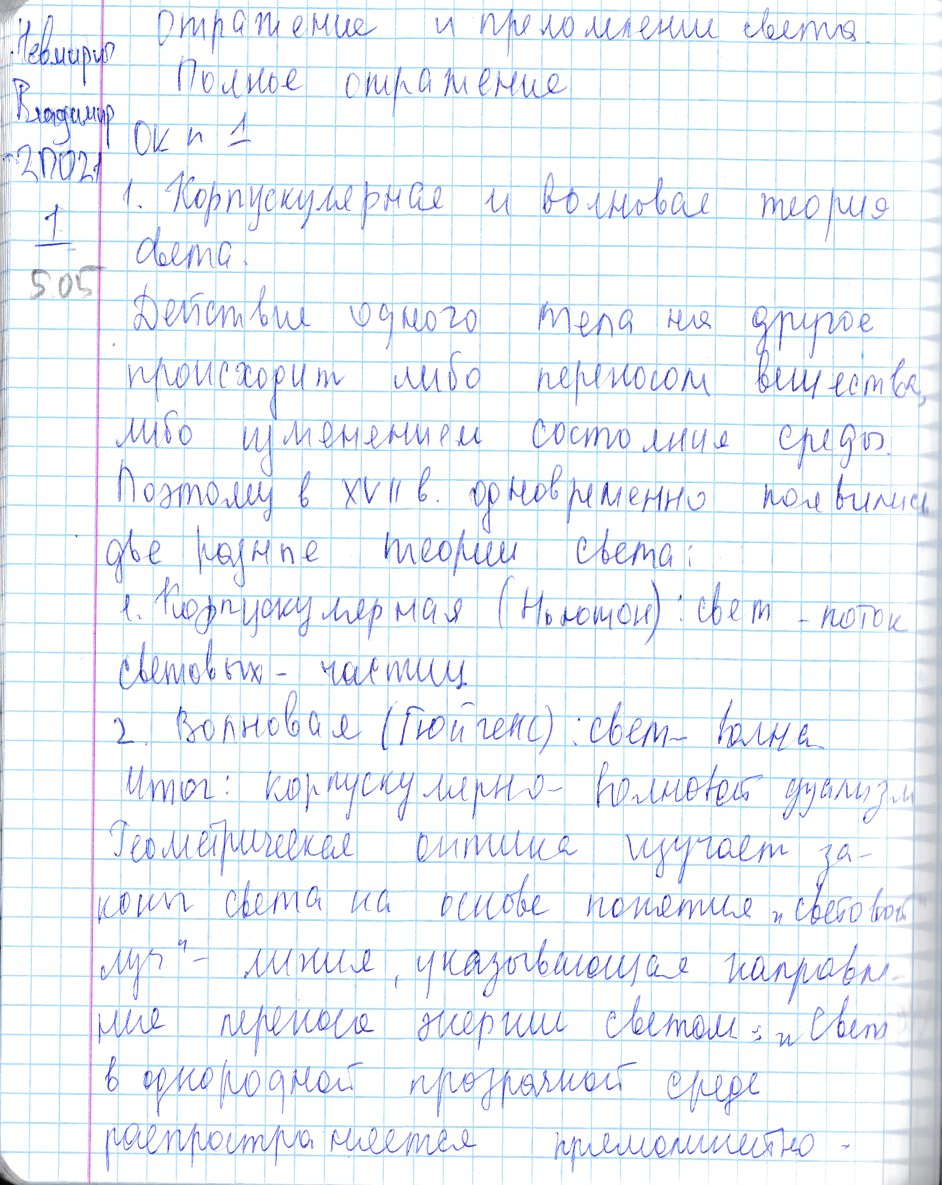 Невмирич
Владимир
2ПО21
1
5.05
Отражение и преломлении света.
Полное отражение
ОК п 1
1. Корпускулярная и волновая теория
света.
Действие одного тела на другое
происходит либо переносом вещества,
либо изменением состояния среды.
Поэтому в XVII в. одновременно появились
две разные теории света:
1. Корпускулярная (Ньютон): свет - поток
световых - частиц
2. Волновая (Гюйгенс): свет - волна
Итог: корпускулярно - волновой дуализм
Геометрическая оптика изучает за-
коны света на основе понятия „световой
луч" - линия, указывающая направле-
ние переноса энергии светом: „Свет
в однородной прозрачной среде
распространяется прямолинейно -